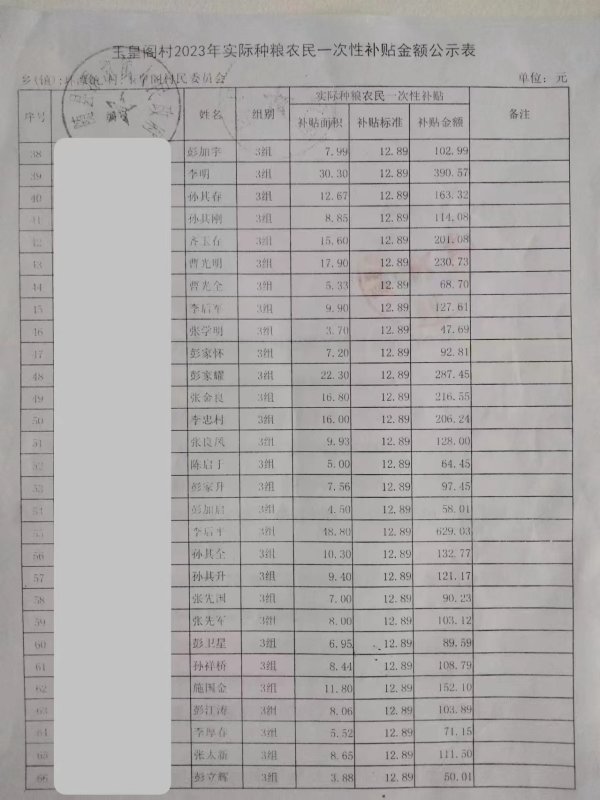 玉皇阁村2023年实际种粮农民一次性补贴金额公示表
乡(镇): 玉皇阁村民委员会 单位: 元
序号 姓名 组别 实际种粮农民一次性补贴 备注
补贴面积 补贴标准 补贴金额
38 彭加宇 3组 7.99 12.89 102.99
39 李明 3组 30.30 12.89 390.57
40 孙其春 3组 12.67 12.89 163.32
41 孙其刚 3组 8.85 12.89 114.08
42 齐玉存 3组 15.60 12.89 201.08
43 曹光明 3组 17.90 12.89 230.73
44 曹光全 3组 5.33 12.89 68.70
45 李后军 3组 9.90 12.89 127.61
46 张学明 3组 3.70 12.89 47.69
47 彭家怀 3组 7.20 12.89 92.81
48 彭家耀 3组 22.30 12.89 287.45
49 张金良 3组 16.80 12.89 216.55
50 李忠村 3组 16.00 12.89 206.24
51 张良凤 3组 9.93 12.89 128.00
52 陈启于 3组 5.00 12.89 64.45
53 彭家升 3组 7.56 12.89 97.45
54 彭加启 3组 4.50 12.89 58.01
55 李后平 3组 48.80 12.89 629.03
56 孙其全 3组 10.30 12.89 132.77
57 孙其升 3组 9.40 12.89 121.17
58 张先国 3组 7.00 12.89 90.23
59 张先军 3组 8.00 12.89 103.12
60 彭卫星 3组 6.95 12.89 89.59
61 孙祥桥 3组 8.44 12.89 108.79
62 施国金 3组 11.80 12.89 152.10
63 彭江涛 3组 8.06 12.89 103.89
64 李厚春 3组 5.52 12.89 71.15
65 张太新 3组 8.65 12.89 111.50
66 彭立辉 3组 3.88 12.89 50.01